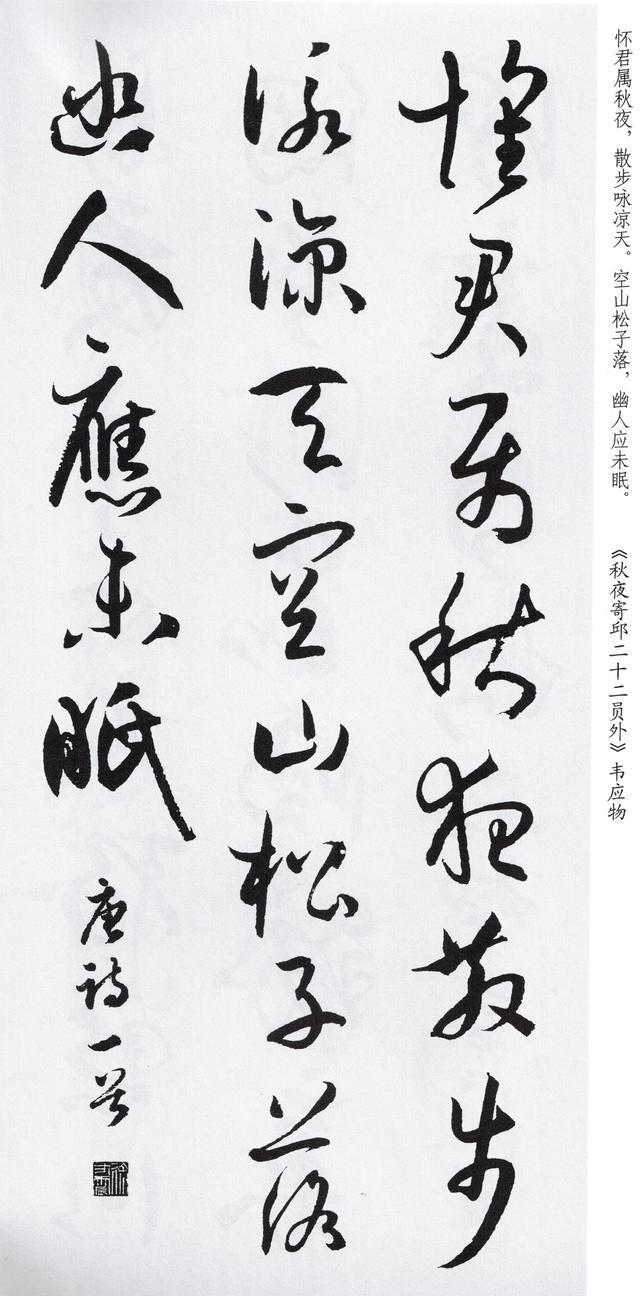 怀君属秋夜，散步咏凉天。空山松子落，幽人应未眠。
《秋夜寄邱二十二员外》韦应物
懷君属秋夜散步
詠凉天空山松子落
幽人應未眠
唐詩一首